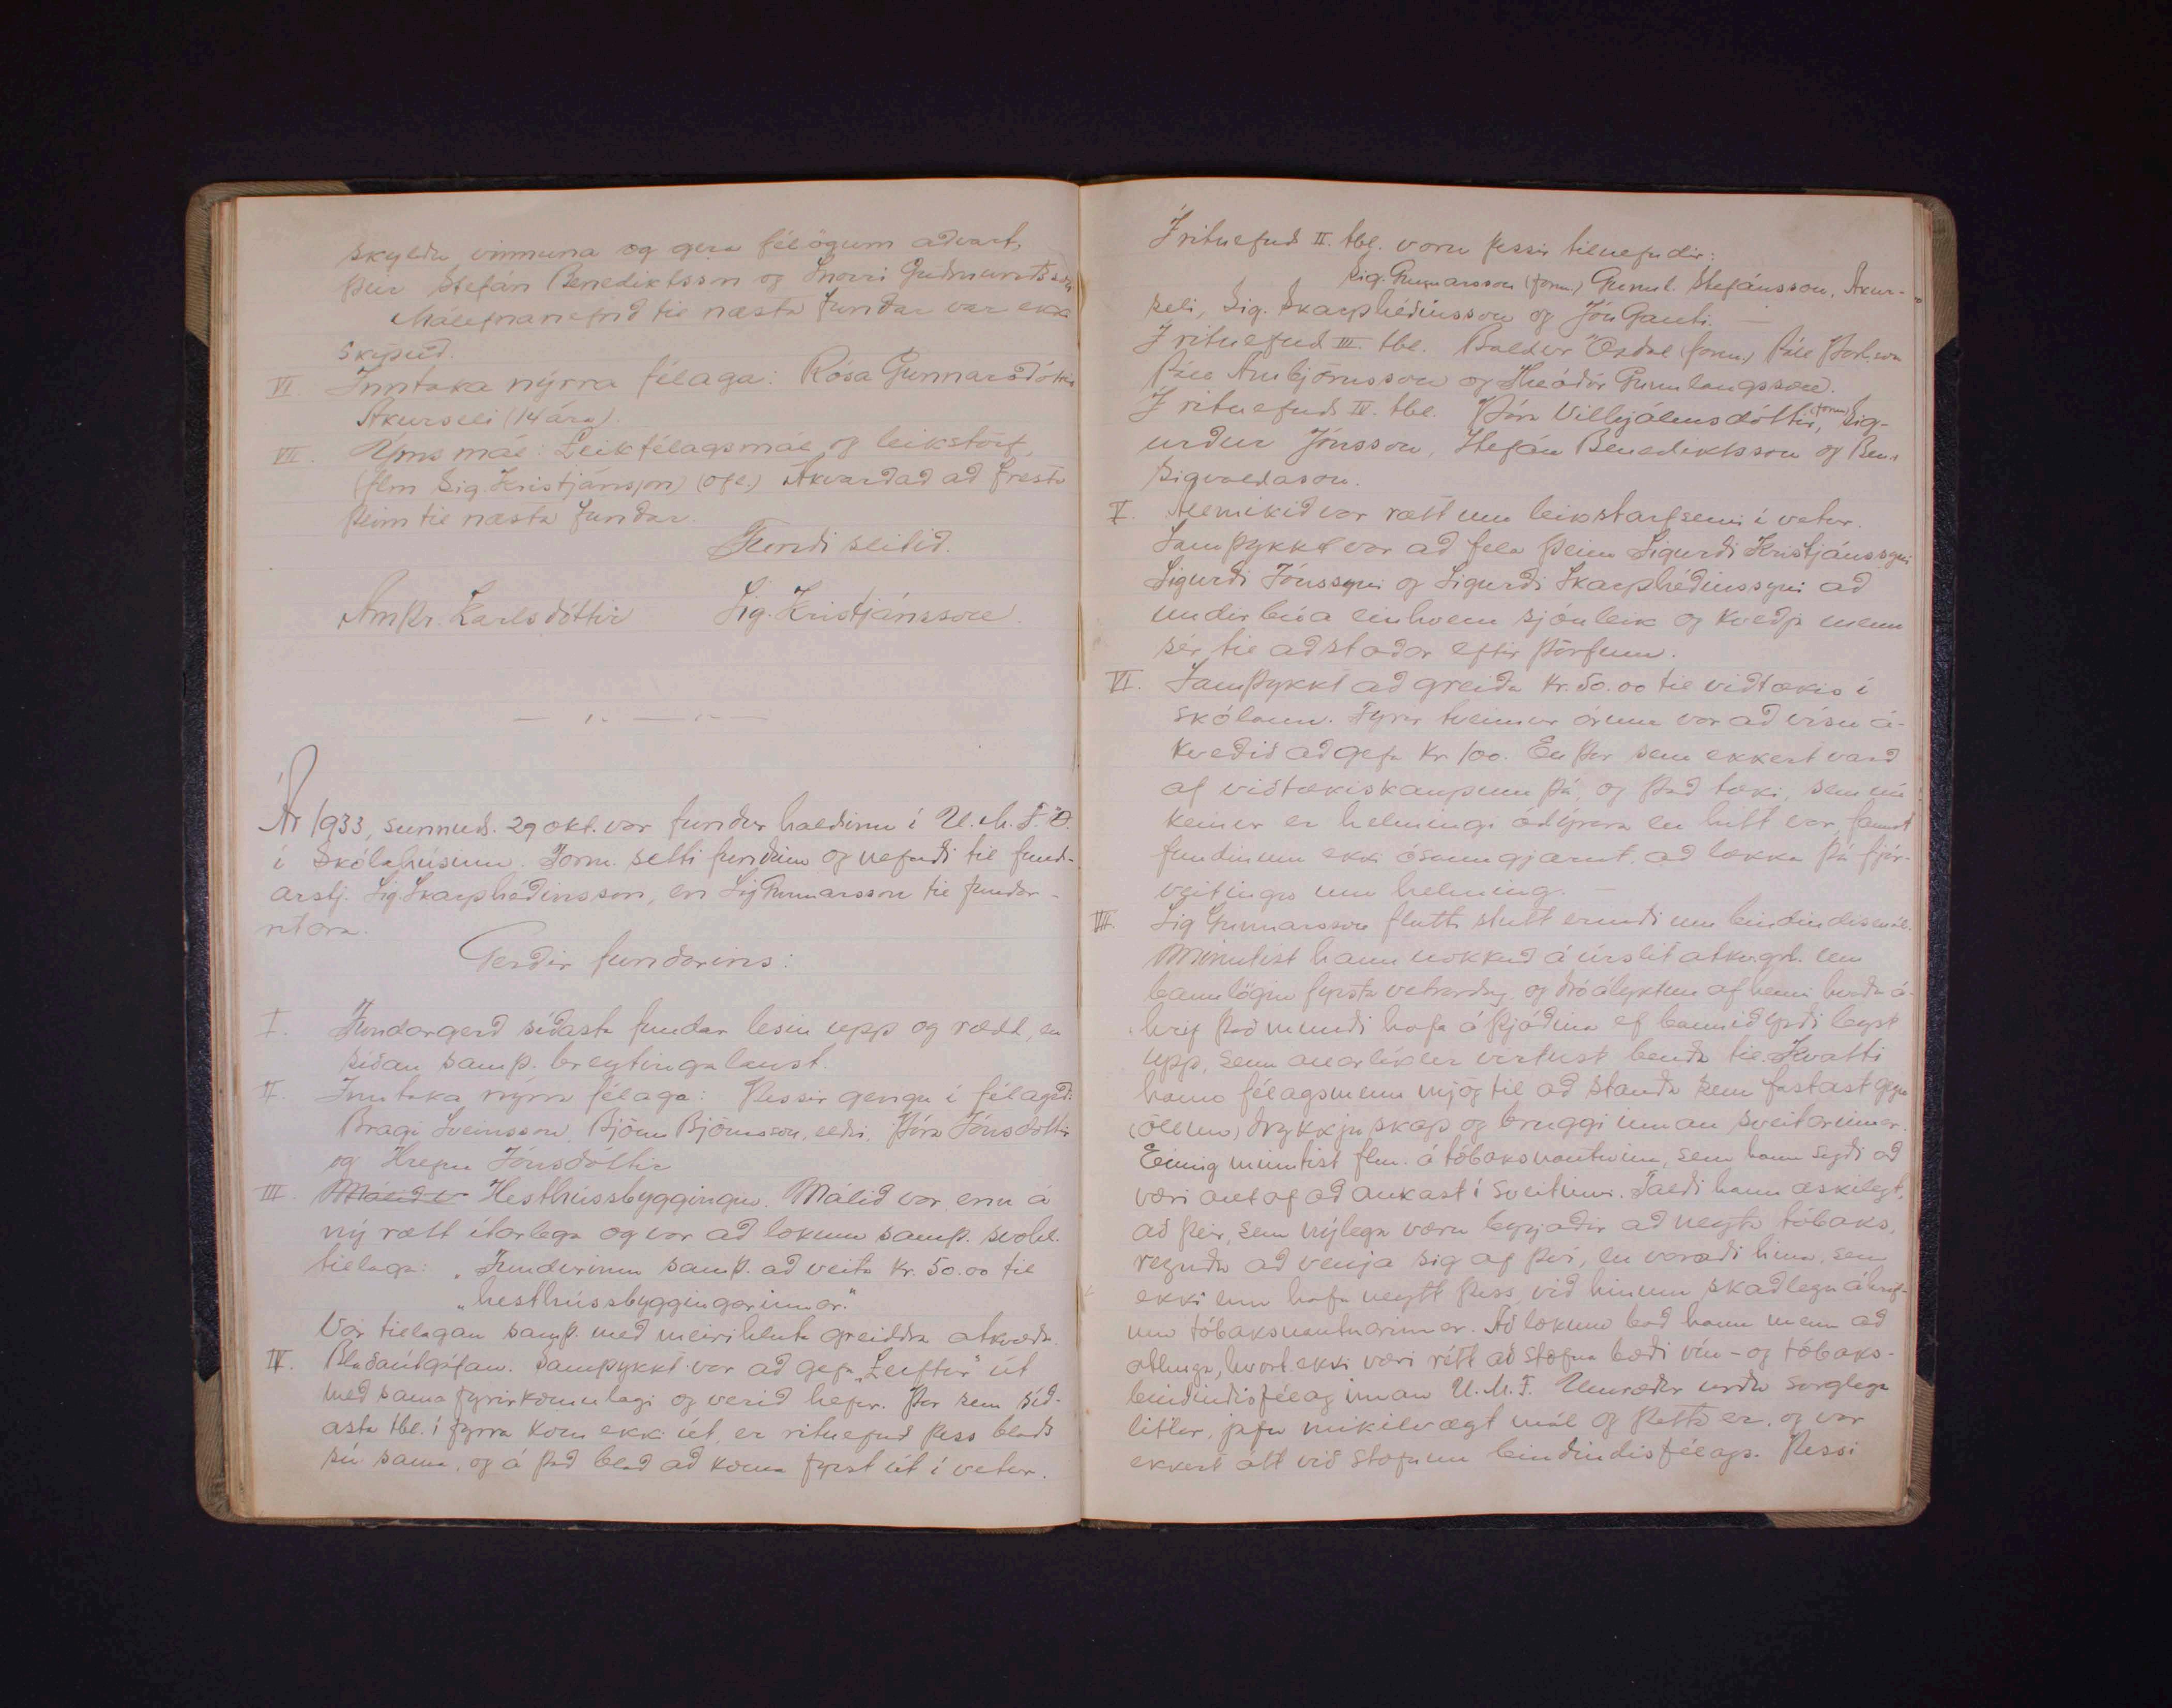 skyldu vinnuna og gera félögum aðvart,
þeir Stefán Benediktsson og Snorri Guðmundsson
Málefnanefnd til næsta fundar var ekki
skipuð.
VI. Inntaka nýrra félaga: Rósa Gunnarsdóttir
Akurseli (14 ára).
VII. Ýms mál: Leikfélagsmál og leikstörf,
(flm Sig. Kristjánsson) (ofl.) Ákvarðað að fresta
þeim til næsta fundar.
Fundi slitið.
Arnþr. Karlsdóttir Sig. Kristjánsson.
— " — " —
Ár 1933, sunnud. 29 okt. var fundur haldinn í U.M.F.Ö.
í Skólahúsinu. Form. setti fundinn og nefndi til fund-
arstj. Sig Skarphéðinsson, en Sig Gunnarsson til fundar-
ritara.
Gerðir fundarins:
I. Fundargerð síðasta fundar lesin upp og rædd, en
síðan samþ. breytingalaust.
II. Inntaka nýrra félaga: Þessir gengu í félagið:
Bragi Sveinsson, Björn Björnsson, eldri, Þóra Jónsdóttir
og Hrefna Jónsdóttir
III. Málið v Hesthússbyggingin. Málið var enn á
ný rætt ítarlega og var að lokum samþ. svohl.
tillaga: „Fundurinn samþ. að veita kr. 50.00 til
„hesthússbyggingarinnar."
Var tillagan samþ. með meirihluta greiddra atkvæða.
IV. Blaðaútgáfan. Samþykkt var að gefa „Leiftur" út
með sama fyrirkomulagi og verið hefur. Þar sem síð-
asta tbl. í fyrra kom ekki út, er ritnefnd þess blaðs
sú sama, og á það blað að koma fyrst út í vetur.
Í ritnefnd II. tbl. voru þessir tilnefndir:
Sig. Gunnarsson (form.) Gunnl. Stefánsson, Akur-
seli, Sig. Skarphéðinsson og Jón Gauti. —
Í ritnefnd III. tbl. Baldur Öxdal (form.) Páll Þorl.son
Páll Arnbjörnsson og Theódór Gunnlaugsson.
Í ritnefnd IV. tbl. Þóra Vilhjálmsdóttir, (form) Sig-
urður Jónsson, Stefán Benediktsson og Ben.
Sigvaldason.
V. Allmikið var rætt um leikstarfsemi í vetur.
Samþykkt var að fela þeim Sigurði Kristjánssyni
Sigurði Jónssyni og Sigurði Skarphéðinssyni að
undirbúa einhvern sjónleik og kveðja menn
sér til aðstoðar eftir þörfum.
VI. Samþykkt að greiða kr. 50.00 til viðtækis í
skólann. Fyrir tveimur árum var að vísu á-
kveðið að gefa kr 100. En þar sem ekkert varð
af viðtækiskaupum þá, og það tæki, sem nú
kemur er helmingi ódýrara en hitt var, fannst
fundinum ekki ósanngjarnt, að lækka þá fjár-
veitingu um helming. —
VII. Sig Gunnarsson flutti stutt erindi um bindindismál.
Minntist hann nokkuð á úrslit atkv.gr. um
bannlögin fyrsta vetrardag, og dró ályktun af henni hvaða á-
hrif það mundi hafa á þjóðina ef bannið yrði leyst
upp, sem allar líkur virtust benda til. Hvatti
hann félagsmenn mjög til að standa sem fastast gegn
(öllum) drykkjuskap og bruggi innan sveitarinnar.
Einnig minntist flm. á tóbaksnautnina, sem hann sagði að
væri alltaf að aukast í sveitinni. Taldi hann æskilegt,
að þeir, sem nýlega væru byrjaðir að neyta tóbaks,
reyndu að venja sig af því, en varaði hina, sem
ekki enn hafa neytt þess, við hinum skaðlegu áhrif-
um tóbaksnautnarinnar. Að lokum bað hann menn að
athuga, hvort ekki væri rétt að stofna bæði vín- og tóbaks-
bindindisfélag innan U.M.F. Umræður urðu sorglega
litlar, jafn mikilvægt mál og þetta er, og var
ekkert átt við stofnun bindindisfélags. Þessi